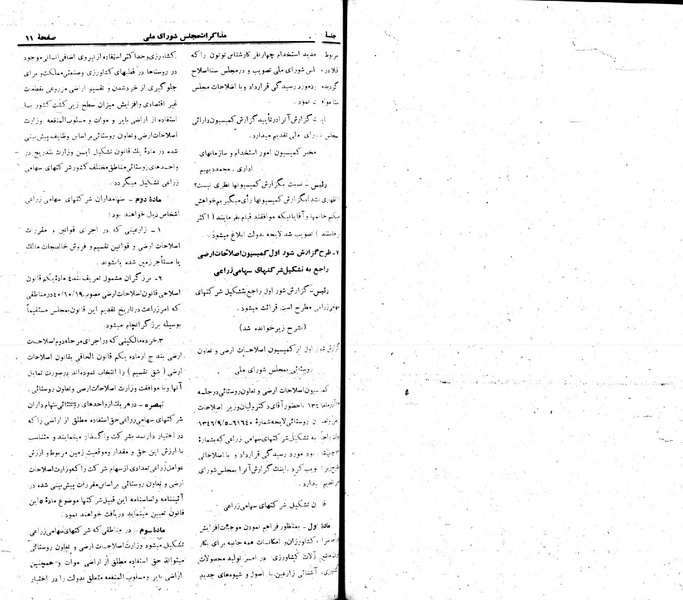 جلسه
مذاکرات مجلس شورای ملی
صفحهٔ ۱۱
مربوط بتمدید استخدام چهار نفر کارشناس توتون را که
مجلس شورای ملی تصویب و در مجلس سنا اصلاح
گردیده مورد رسیدگی قرار داد و با اصلاحات مجلس
سنا موافقت نمود.
اینک گزارش آنرا در تأیید گزارش کمیسیون دارائی
مجلس شورای ملی تقدیم میدارد.
مخبر کمیسیون امور استخدام و سازمانهای
اداری.
رئیس- نسبت بگزارش کمیسیونها نظری نیست؟
(اظهاری نشد) بگزارش کمیسیونها رأی میگیریم خواهش
میکنم خانمها و آقایانیکه موافقند قیام فرمایند (اکثر
برخاستند) تصویب شد لایحه بدولت ابلاغ میشود.
۱- طرح گزارش شور اول کمیسیون اصلاحات ارضی
راجع به تشکیل شرکتهای سهامی زراعی
رئیس- گزارش شور اول راجع بتشکیل شرکتهای
سهامی زراعی مطرح است قرائت میشود.
(بشرح زیر خوانده شد)
گزارش شور اول از کمیسیون اصلاحات ارضی و تعاون
روستائی بمجلس شورای ملی
کمیسیون اصلاحات ارضی و تعاون روستائی در جلسه
با حضور آقای دکتر ولیان وزیر اصلاحات
ارضی و تعاون روستائی لایحه شمارهٔ ۶۱۶۴۰-۱۳۴۶/۹/۵
راجع به تشکیل شرکتهای سهامی زراعی که بشماره
بود مورد رسیدگی قرار داد و با اصلاحاتی
بشرح زیر تصویب کرد. اینک گزارش آنرا بمجلس شورای
ملی تقدیم میدارد.
قانون تشکیل شرکتهای سهامی زراعی
مادهٔ اول- بمنظور فراهم نمودن موجبات افزایش
درآمد کشاورزان و امکانات همه جانبه برای بکار
ماشین آلات کشاورزی در امر تولید محصولات
کشاورزی، آشنائی زارعین با اصول و شیوه‌های جدید
کشاورزی و حداکثر استفاده از نیروی اضافی انسانی موجود
در روستاها در فعالیتهای کشاورزی و صنعتی مملکت و برای
جلوگیری از خرد شدن و تقسیم اراضی مزروعی بقطعات
غیر اقتصادی و افزایش میزان سطح زیر کشت کشور با
استفاده از اراضی بایر و موات و مسلوب‌المنفعه وزارت
اصلاحات ارضی و تعاون روستائی بر اساس وظایف پیش‌بینی
شده در مادهٔ یک قانون تشکیل این وزارت بتدریج در
واحدهای روستائی مناطق مختلف کشور شرکتهای سهامی
زراعی تشکیل میگردد.
مادهٔ دوم- سهامداران شرکتهای سهامی زراعی
اشخاص ذیل خواهند بود:
۱- زارعینی که در اجرای قوانین و مقررات
اصلاحات ارضی و قوانین تقسیم و فروش خالصجات مالک
یا مستأجر زمین شده یا بشوند.
۲- برزگران مشمول تعریف بند ۴ مادهٔ یکم قانون
اصلاحی قانون اصلاحات ارضی مصوب ۴۰/۱۰/۱۹ در مناطقی
که امر زراعت در تاریخ تقدیم این قانون بمجلس مستقیماً
بوسیله برزگر انجام میشود.
۳. خرده مالکینی که در اجرای مرحله دوم اصلاحات
ارضی بند ج از ماده یکم قانون الحاقی بقانون اصلاحات
ارضی (شق تقسیم) را انتخاب نموده‌اند در صورت تمایل
آنها و با موافقت وزارت اصلاحات ارضی و تعاون روستائی.
تبصره- در هر یک از واحدهای روستائی سهام داران
شرکتهای سهامی زراعی حق استفاده مطلق از اراضی را که
در اختیار دارند بشرکت واگذار مینمایند و متناسب
با ارزش این حق و مقدار و موقعیت زمین مربوط و ارزش
عوامل زراعی تعدادی از سهام شرکت را که وزارت اصلاحات
ارضی و تعاون روستائی بر اساس مقررات پیش بینی شده در
آئیننامه و اساسنامه این قبیل شرکتها موضوع مادهٔ ۵ این
قانون تعیین مینماید دریافت خواهند نمود.
مادهٔ سوم- در مناطقی که شرکتهای سهامی زراعی
تشکیل میشود وزارت اصلاحات ارضی و تعاون روستائی
میتواند حق استفاده مطلق از اراضی موات و همچنین
اراضی بایر و مسلوب‌المنفعه متعلق بدولت را در اختیار